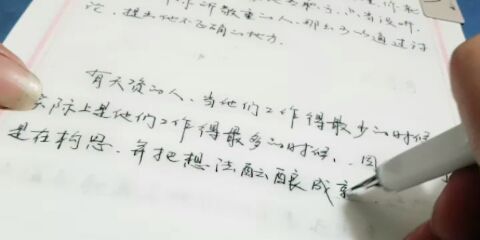 你所敬重的人,那至少通过讨
论,提出他不正确的地方.
有天资的人,当他们工作得最少的时候
实际上是他们工作得最多的时候,因
是在构思,并把想法酝酿成